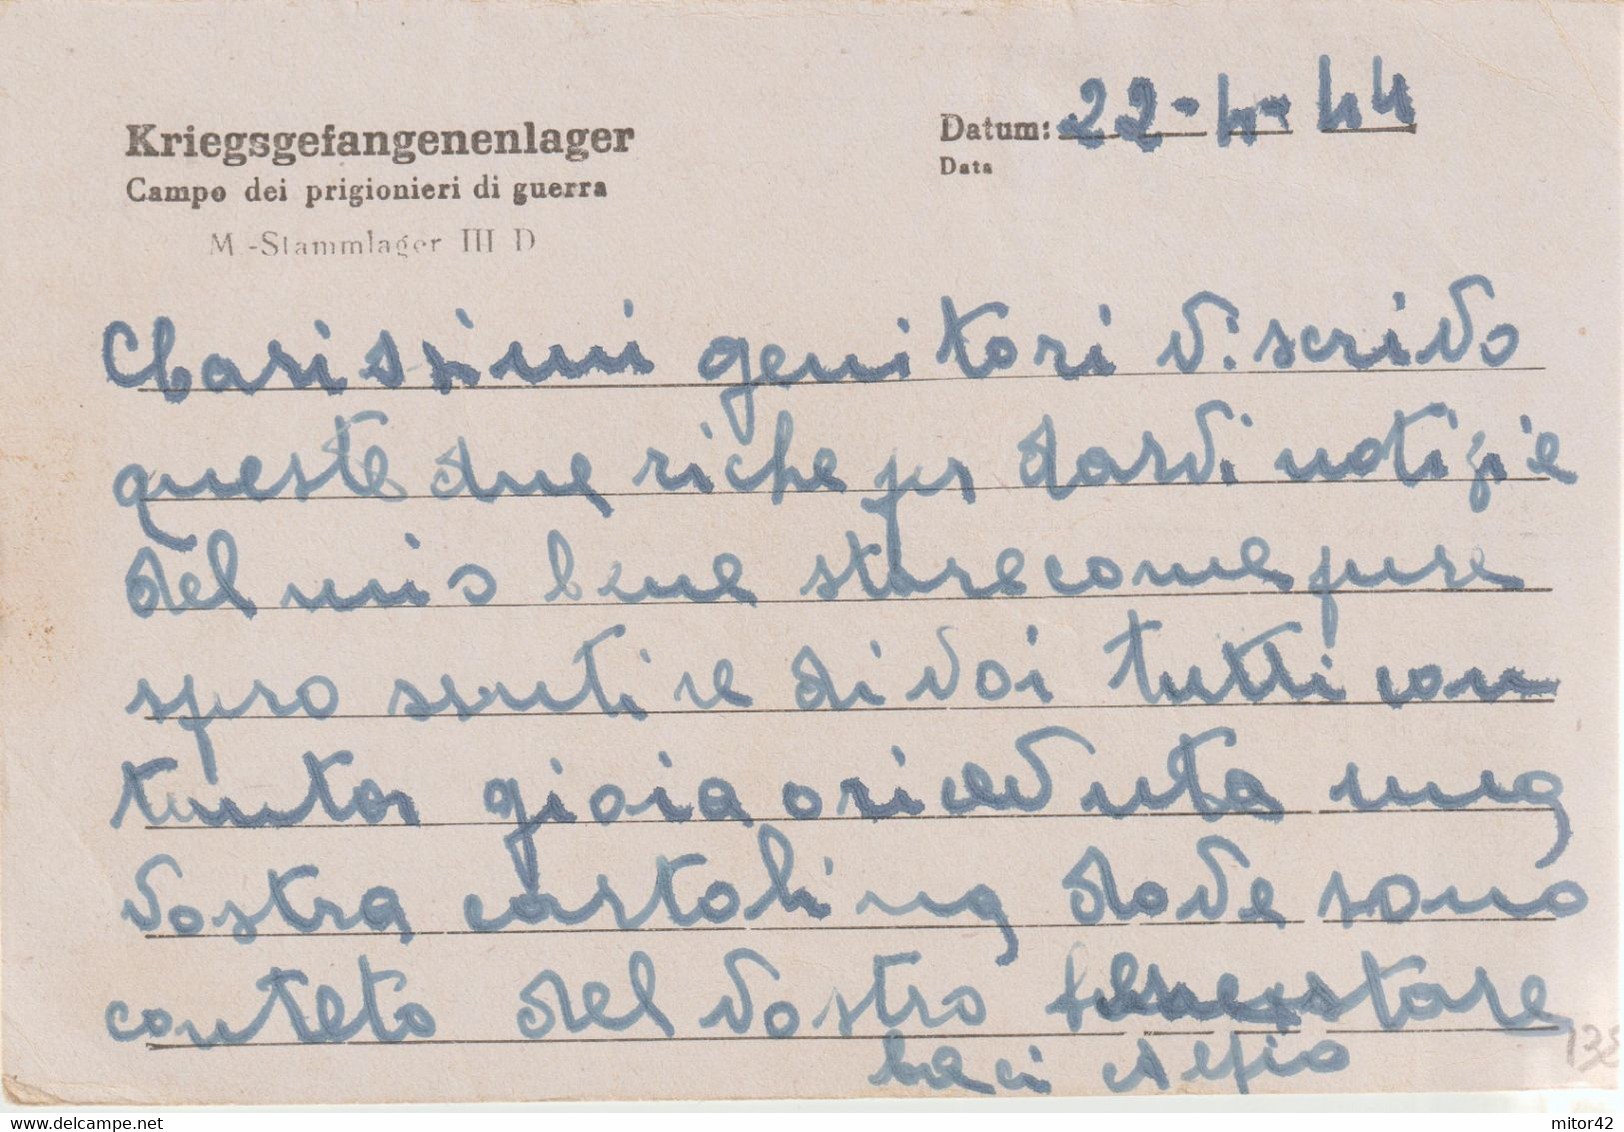 Kriegsgefangenenlager
Campo dei prigionieri di guerra
M.-Stammlager III D
Datum: 22-4-44
Data
Charissimi genitori Vi scrivo
queste due riche per darvi notizie
del mio bene stare come pure
spero sentire di voi tutti con
tanta gioia o riceduta una
vostra cartolina dove sono
conteto del vostro bene stare
baci Alfio
138
delcampe.net
mitor42